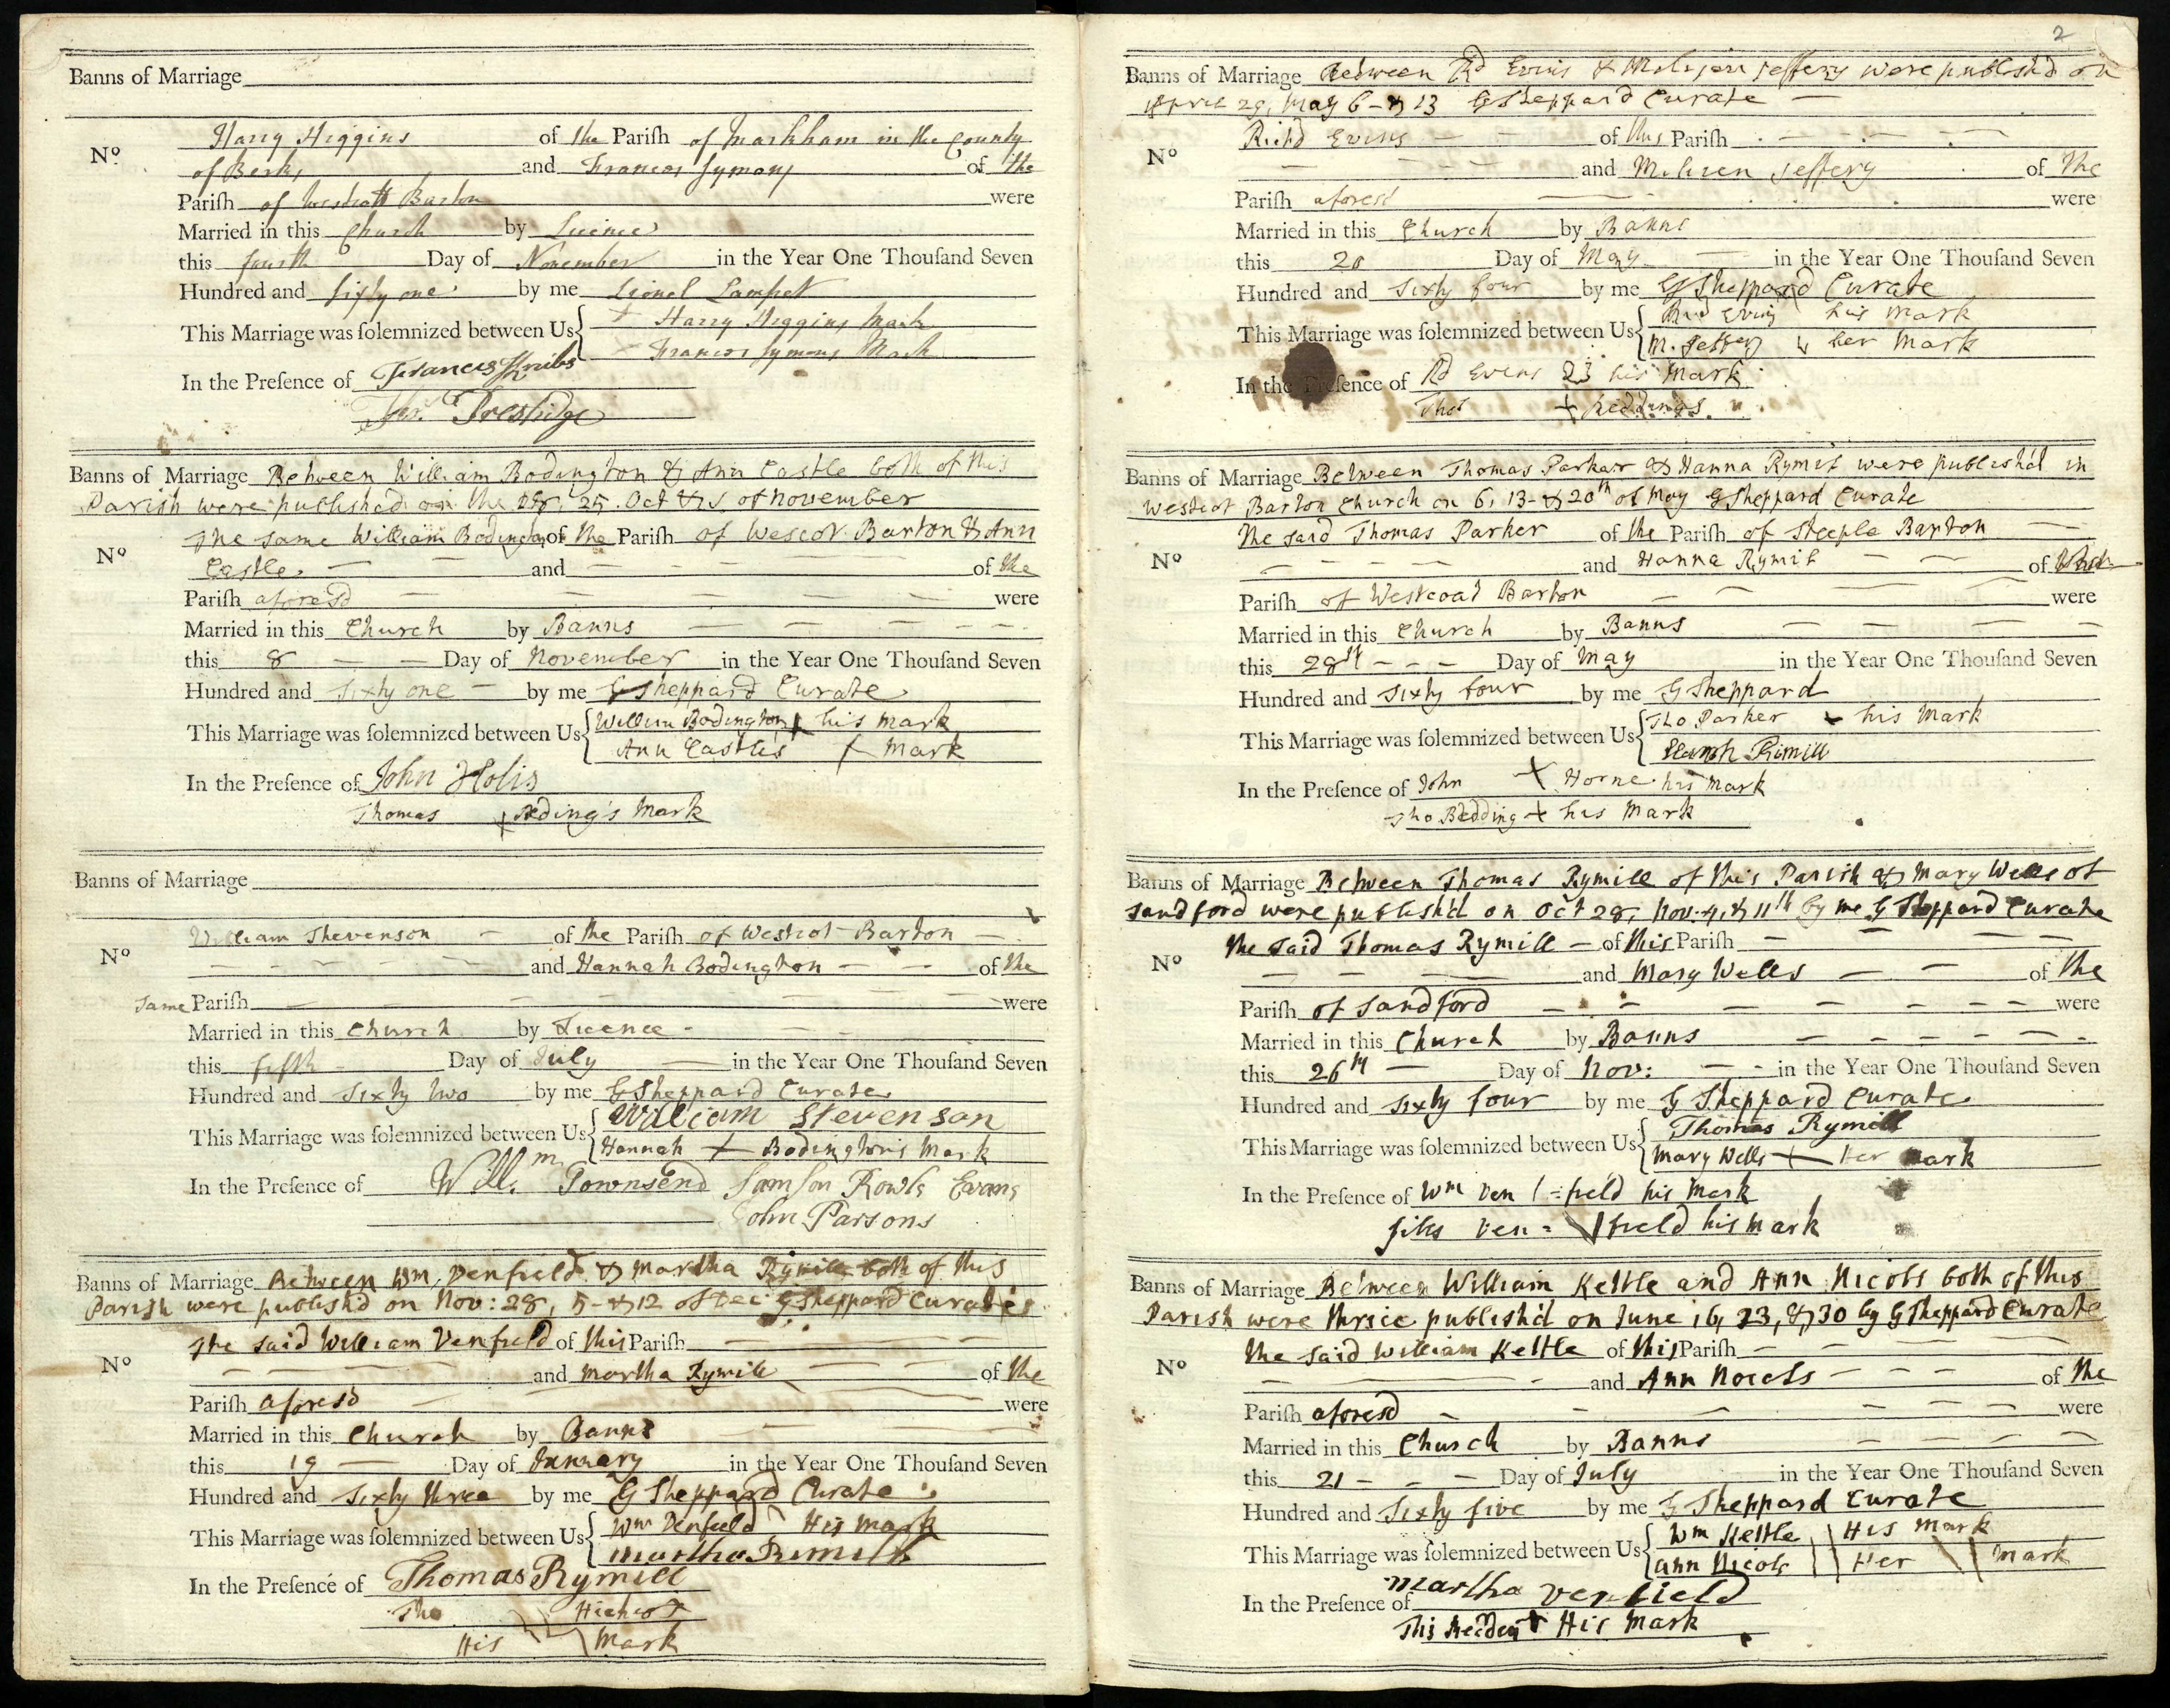 Banns of Marriage
Harry Higgins of the Pariſh of Markham in the County
Nº
of Berks and Frances Symons of the
Pariſh of Westcott Barton were
Married in this Church by Licence
this fourth Day of November in the Year One Thouſand Seven
Hundred and Sixty one by me Lionel Lampet
This Marriage was ſolemnized between Us Harry Higgins Mark
Frances Symons Mark
In the Preſence of Frances
Thos. Prestidge
Banns of Marriage Between William Bodington & Ann Castle both of this
Parish were published on the 18, 25. Oct & 1. of November
The same William Bodington of the Pariſh of Wescot Barton & Ann
Nº
Castle and of the
Pariſh aforesd were
Married in this Church by Banns
this 8 Day of November in the Year One Thouſand Seven
Hundred and Sixty one by me G Sheppard Curate
This Marriage was ſolemnized between Us William Bodington + his mark
Ann Castle's + Mark
In the Preſence of John Holis
Thomas + Reding's Mark
Banns of Marriage
William Shevenson of the Pariſh of Westcot Barton
Nº
and Hannah Bodington of the
same Pariſh were
Married in this Church by Licence
this fifth Day of July in the Year One Thouſand Seven
Hundred and Sixty two by me G Sheppard Curate
This Marriage was ſolemnized between Us William Stevenson
Hannah + Bodington's Mark
In the Preſence of Willm Townsend Samson Rowls Evans
John Parsons
Banns of Marriage Between Wm. Venfield & Martha Rymill both of this
Parish were publish'd on Nov: 28, 5 - & 12 of Dec G Sheppard Curate
The said William Venfield of this Pariſh
Nº
and Martha Rymill of the
Pariſh aforesd were
Married in this Church by Banns
this 19 Day of January in the Year One Thouſand Seven
Hundred and Sixty three by me G Sheppard Curate
This Marriage was ſolemnized between Us Wm Venfield His mark
Martha Rimill
In the Preſence of Thomas Rymill
Tho
His Mark
2
Banns of Marriage Between Rd Evins & Jeffery were publish'd on
April 29, May 6 - & 13 G Sheppard Curate
Richd Evins of this Pariſh
Nº
and Jeffery of the
Pariſh aforesd were
Married in this Church by Banns
this 20 Day of May in the Year One Thouſand Seven
Hundred and Sixty four by me G Sheppard Curate
This Marriage was ſolemnized between Us Richd Evins his mark
M. Jeffery her Mark
In the Preſence of Rd Evens his Mark
Thos + Reddings
Banns of Marriage Between Thomas Parker & Hanna Rymil were publish'd in
Westcot Barton Church on 6, 13 - & 20th of May G Sheppard Curate
The said Thomas Parker of the Pariſh of Steeple Barton
Nº
and Hanna Rymil of the
Pariſh of Westcoat Barton were
Married in this Church by Banns
this 28th Day of May in the Year One Thouſand Seven
Hundred and Sixty four by me G Sheppard
This Marriage was ſolemnized between Us Tho Parker his Mark
Hannah Rimill
In the Preſence of John + Horne his Mark
Tho Redding + his Mark
Banns of Marriage Between Thomas Rymill of this Parish & Mary Wells of
Sandford were publish'd on Oct 28, Nov: 4, & 11th by me G Sheppard Curate
The said Thomas Rymill of this Pariſh
Nº
and Mary Wells of the
Pariſh of Sandford were
Married in this Church by Banns
this 26th Day of Nov: in the Year One Thouſand Seven
Hundred and Sixty four by me G Sheppard Curate
This Marriage was ſolemnized between Us Thomas Rymill
Mary Wells + Her Mark
In the Preſence of Wm Ven = field his Mark
Ven = field his Mark
Banns of Marriage Between William Keltle and Ann Nicols both of this
Parish were thrice publish'd on June 16, 23, & 30 by G Sheppard Curate
The said William Keltle of this Pariſh
Nº
and Ann Nicols of the
Pariſh aforesd were
Married in this Church by Banns
this 21 Day of July in the Year One Thouſand Seven
Hundred and Sixty five by me G Sheppard Curate
This Marriage was ſolemnized between Us Wm Keltle His Mark
Ann Nicols Her Mark
In the Preſence of Martha Venfield
+ His Mark